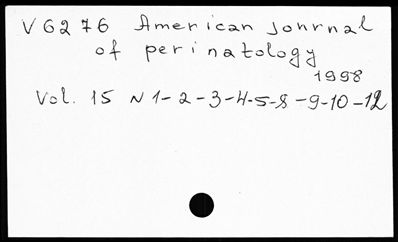 V 6276 American Journal
of perinatology
1998
Vol. 15 N 1-2-3-4-5-8-9-10-12